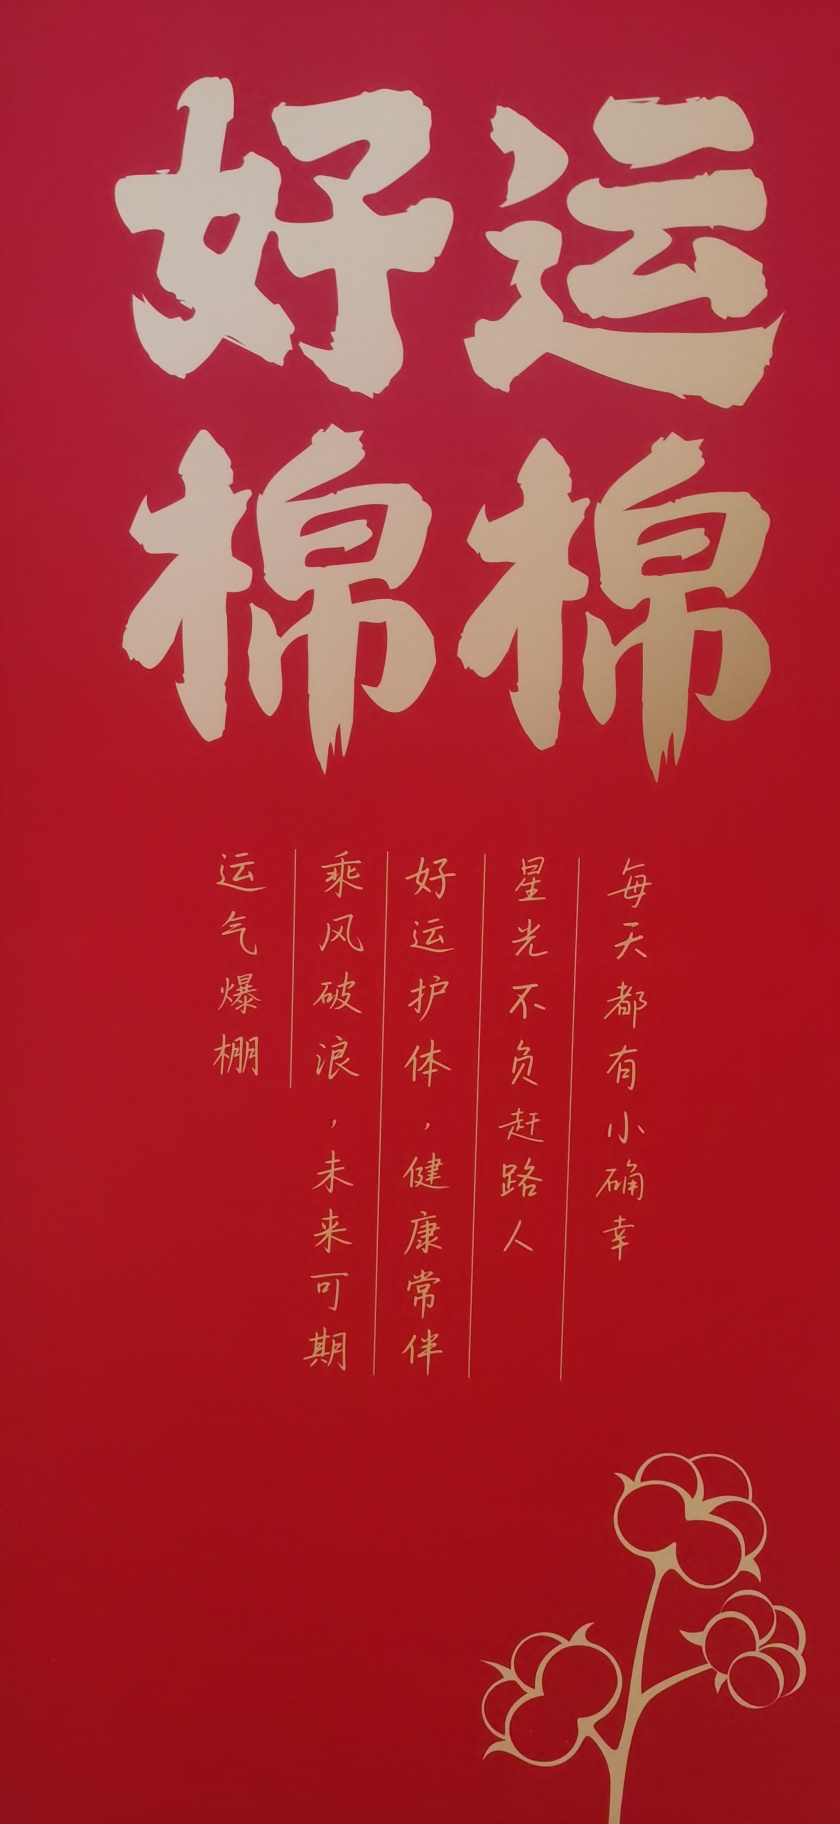 好运
棉棉
每天都有小确幸
星光不负赶路人
好运护体，健康常伴
乘风破浪，未来可期
运气爆棚